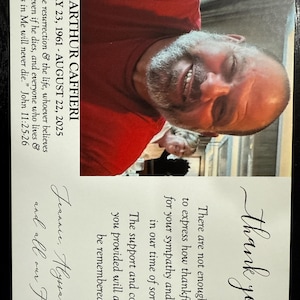 ARTHUR CAFFIERI
Y 23, 1961 - AUGUST 22, 2025
e resurrection & the life, whoever believes
even if he dies, and everyone who lives &
s in Me will never die." John 11:25-26
thank yo
There are not enoug
to express how thankf
for your sympathy and
in our time of sor
The support and co
you provided will a
be remembere
Jeannie, Alyssa
and all our F